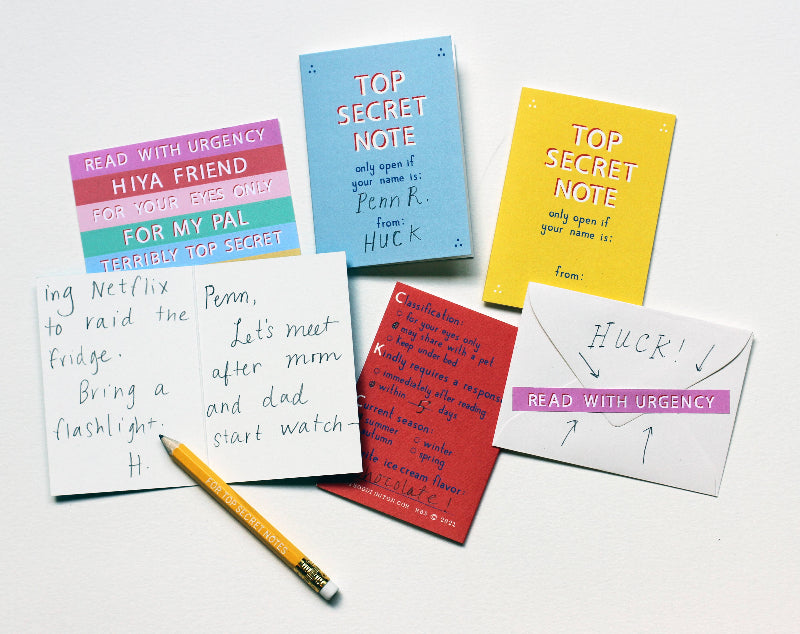 READ WITH URGENCY
HIYA FRIEND
FOR YOUR EYES ONLY
FOR MY PAL
TERRIBLY TOP SECRET
TOP
SECRET
NOTE
only open if
your name is:
Penn R.
from:
HUCK
TOP
SECRET
NOTE
only open if
your name is:
from:
ing Netflix
to raid the
fridge.
Bring a
flashlight.
H.
Penn,
Let's meet
after mom
and dad
start watch-
Classification:
for your eyes only
may share with a pet
keep under bed
Kindly requires a respons
immediately after reading
within 5 days
urrent season:
summer winter
autumn spring
ice cream flavor:
chocolate!
© 2021
HUCK!
READ WITH URGENCY
FOR TOP SECRET NOTES